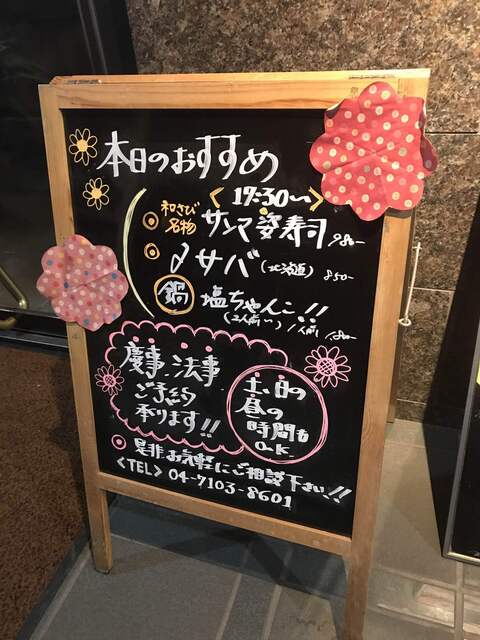 本日のおすすめ
<17:30〜>
和さび名物 サンマ姿寿司 980-
〆サバ (北海道) 850-
鍋 塩ちゃんこ!!
(2人前〜) 1人前
慶事、法事
ご予約
承ります!!
土・日の
昼の
時間も
O.K.
是非お気軽にご相談下さい!!
<TEL> 04-7103-8601